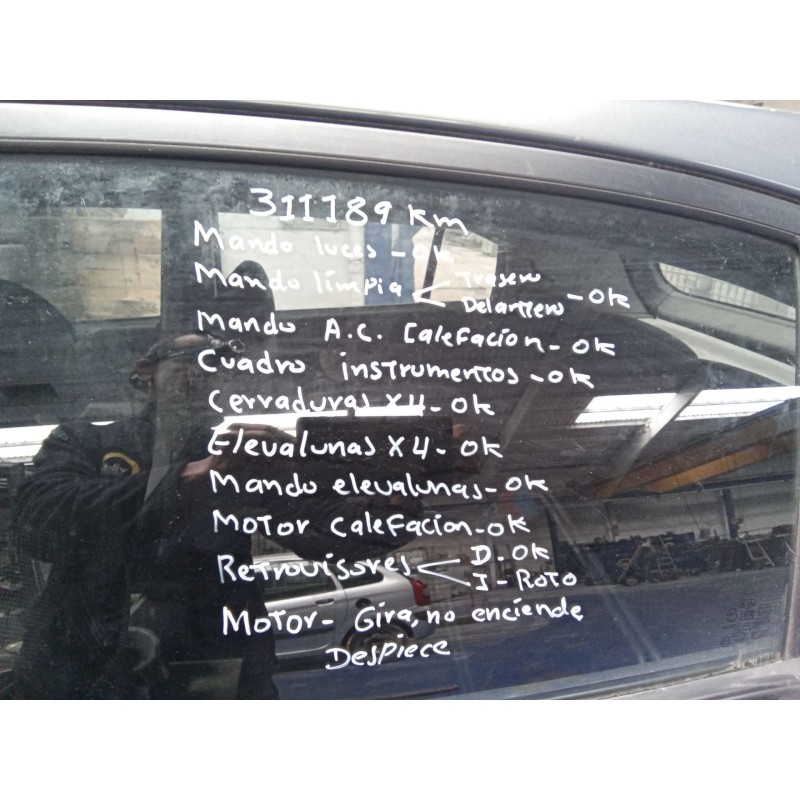 311189 km
Mando luces - OK
Mando limpia < Trasero - OK
Delantero
Mando A.C. Calefacion - OK
Cuadro instrumentos - OK
Cerraduras X4 - OK
Elevalunas X4 - OK
Mando elevalunas - OK
Motor Calefacion - OK
Retrovisores < D - OK
I - ROTO
Motor - Gira, no enciende
Despiece